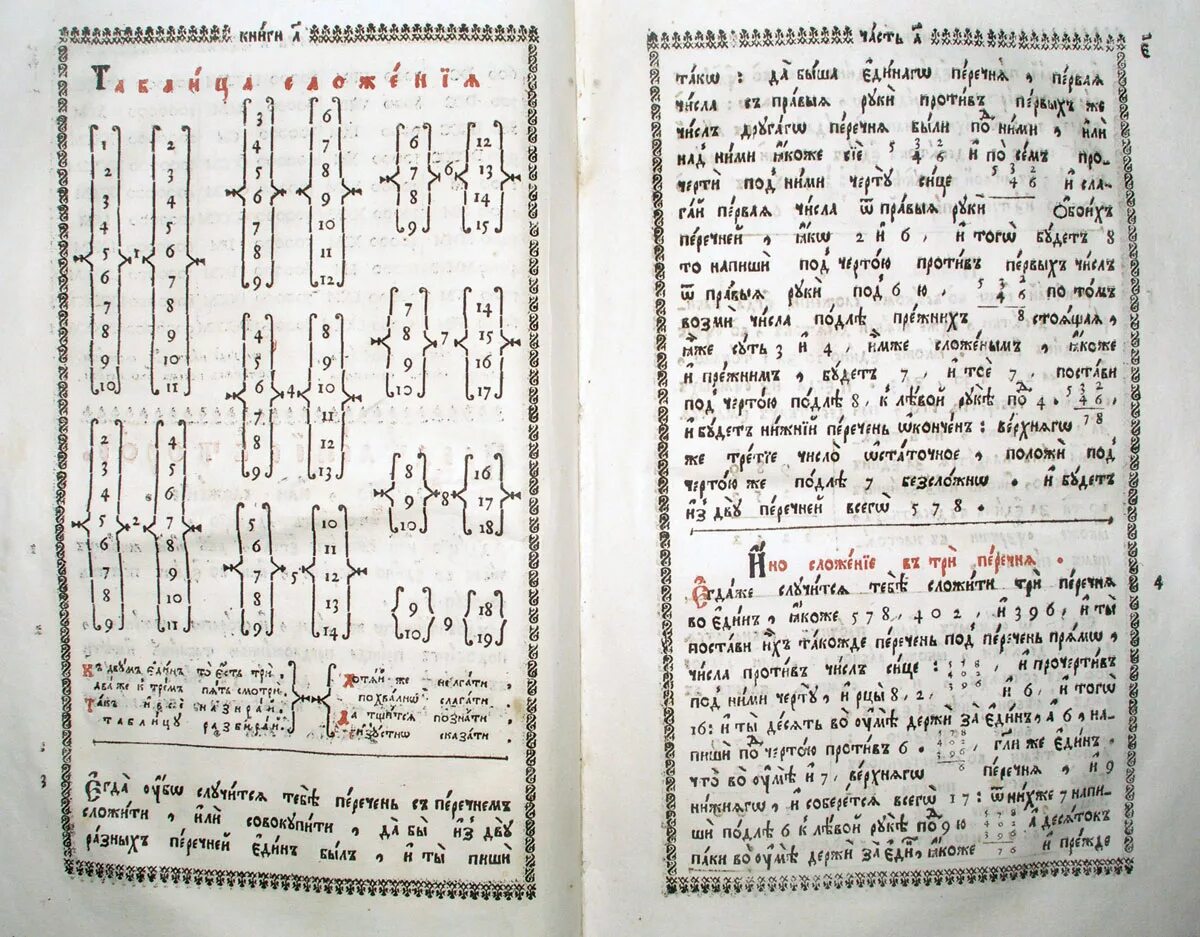 кни́ги а҃
Табли́ца сложе́нїѧ
1 2
2 3
3 4
4 5
5 1 6
6 7
7 8
8 9
9 10
10 11
2 4
3 5
4 6
5 2 7
6 8
7 9
8 10
9 11
3 6
4 7
5 8
6 9
7 10
8 11
9 12
4 8
5 9
6 4 10
7 11
8 12
9 13
5 10
6 11
7 5 12
8 13
9 14
6 12
7 6 13
8 14
9 15
7 14
8 7 15
9 16
10 17
8 16
9 8 17
10 18
9 9 18
10 19
Къ двꙋмъ є҆ди́нъ то є҆сть трѝ.
два же к̾ тре́мъ пѧ́ть смотрѝ.
Та́къ и҆ всѐ назира́й,
таблицꙋ разбира́й.
Хотѧ́й же не лга́ти,
похва́лнѡ слага́ти
Да тщи́тсѧ позна́ти
и҆зꙋстнѡ сказа́ти.
3
Є҆гда̀ ᲂу҆́бѡ слꙋчи́тсѧ тебѣ̀ пе́речень съ пе́речнемъ
сложи́ти, и҆лѝ совокупи́ти, да бы̀ и҆з̾ двꙋ̀
ра́зныхъ пе́речней є҆ди́нъ бы́лъ, и҆ ты̀ пишѝ
ча́сть а҃
є҃і
та́кѡ: да бы́ша є҆ди́нагѡ пе́речнѧ, пе́рваѧ
чи́сла съ пра́выѧ рꙋкѝ проти́въ пе́рвыхъ же
чи́слъ дрꙋга́гѡ пе́речнѧ бы́ли под̾ ни́ми, и҆лѝ
над̾ ни́ми ꙗ҆́коже сїѐ 5 3 2 4 6 и҆ по се́мъ про-
чертѝ под̾ ни́ми чертꙋ̀ си́це 5 3 2 4 6 и҆ сла-
га́й пе́рваѧ чи́сла ѿ пра́выѧ рꙋкѝ ѻ҆бои́хъ
пе́речней, ꙗ҆́кѡ 2 и҆ 6, и҆ тогѡ̀ бꙋ́детъ 8
то напишѝ под̾ черто́ю проти́въ пе́рвыхъ чи́слъ
ѿ пра́выѧ рꙋкѝ под̾ 6 ю, 5 3 2 4 6 по то́мъ
возмѝ чи́сла по́длѣ пре́жнихъ 8 стоѧ́щаѧ,
ꙗ҆̀же сꙋ́ть 3 и҆ 4, и҆̀мже сложе́нымъ, ꙗ҆́коже
и҆ пре́жнимъ, бꙋ́детъ 7, и҆ тоѐ 7, поста́ви
под̾ черто́ю по́длѣ 8, к̾ лѣ́вой рꙋкѣ̀ под̾ 4. 5 3 2 4 6,
и҆ бꙋ́детъ ни́жнїй пе́речень ѡ҆ко́нченъ: ве́рхнѧгѡ 7 8
же тре́тїе число̀ ѡ҆ста́точное, положѝ под̾
черто́ю же по́длѣ 7 безсло́жнѡ. и҆ бꙋ́детъ
и҆з̾ двꙋ̀ пе́речней всегѡ̀ 5 7 8.
И҆́но сложе́нїе въ трѝ пе́речнѧ.
4
Є҆гда́же слꙋчи́тсѧ тебѣ̀ сложи́ти трѝ пе́речнѧ
во є҆ди́нъ, ꙗ҆́коже 5 7 8, 4 0 2, и҆ 3 9 6, и҆ ты̀
поста́ви и҆́хъ та́кожде пе́речень под̾ пе́речень прѧ́мѡ,
чи́сла проти́въ чи́слъ си́це: 5 7 8, 4 0 2 3 9 6 и҆ прочерти́въ
под̾ ни́ми чертꙋ̀, и҆ рцы̀ 8, 2, и҆ 6, и҆ тогѡ̀
16: и҆ ты̀ де́сѧть во ᲂу҆мѣ̀ держѝ за є҆ди́нъ, а҆ 6, на-
пишѝ под̾ черто́ю проти́въ 6. 5 7 8 4 0 2 3 9 6, 6 гл҃и же є҆ди́нъ.
что̀ во ᲂу҆мѣ̀ и҆ 7, ве́рхнѧгѡ пе́речнѧ, и҆ 9
ни́жнѧгѡ, и҆ собере́тсѧ всегѡ̀ 17: ѿ ни́хже 7 напи-
шѝ по́длѣ 6 к̾ лѣ́вой рꙋкѣ̀ под̾ 9 ю 5 7 8 4 0 2 3 9 6 а҆ десѧ́токъ
па́ки во ᲂу҆мѣ̀ держѝ за є҆ди́нъ, ꙗ҆́коже 7 6 и҆ пре́жде